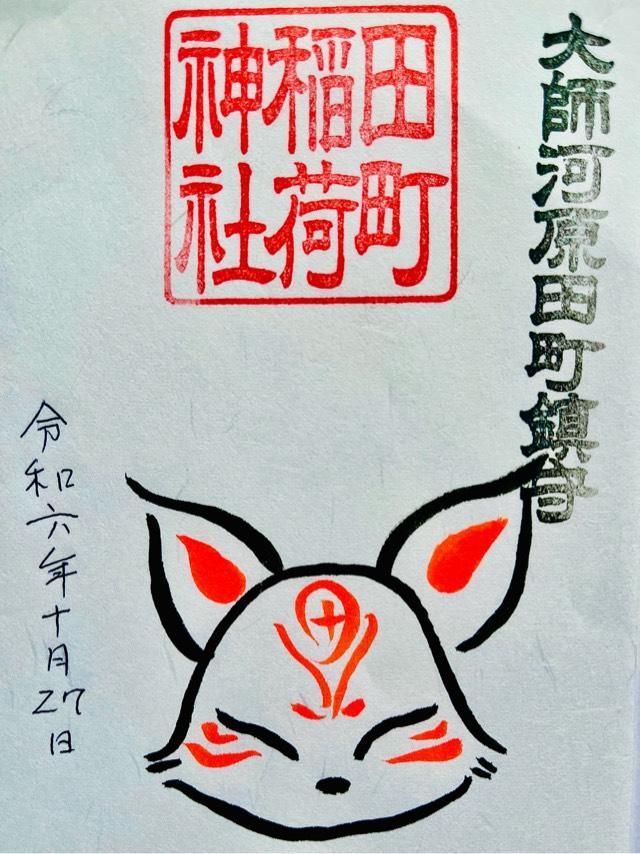 大師河原田町鎮守
田町
稲荷
神社
令和六年十月27日